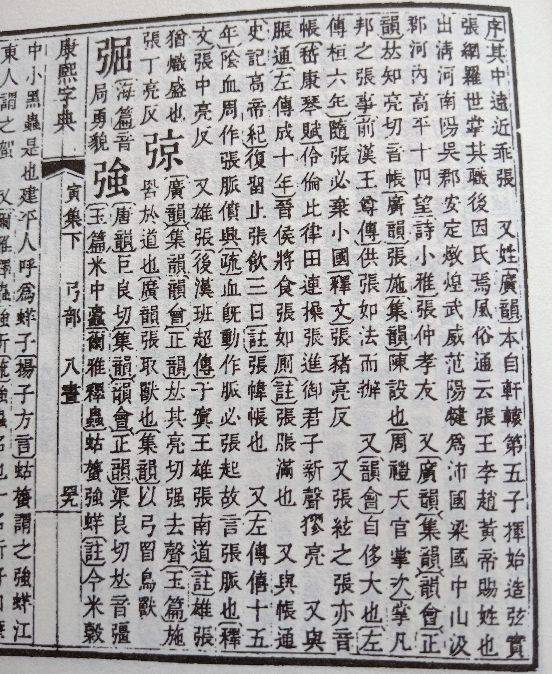 序其中遠近乖張　又姓廣韻本自軒轅第五子揮始造弦實
張網羅世掌其職後因氏焉風俗通云張王李趙黃帝賜姓也
出淸河南陽吳郡安定燉煌武威范陽犍爲沛國梁國中山汲
郡河內高平十四望詩小雅張仲孝友　又廣韻集韻韻會正
韻𠀤知亮切音帳廣韻張施集韻陳設也周禮天官掌次掌凡
邦之張事前漢王尊傳供張如法而辦　又韻會自侈大也左
傳桓六年隨張必棄小國釋文張豬亮反　又張絃之張亦音
帳嵆康琴賦伶倫比律田連操張進御君子新聲憀亮　又與
脹通左傳成十年晉侯將食張如廁註張脹滿也　又與帳通
史記高帝紀復留止張飲三日註張幃帳也　又左傳僖十五
年陰血周作張脈僨興疏血旣動作脈必張起故言張脈也釋
文張中亮反　又雄張後漢班超傳于寘王雄張南道註雄張
猶熾盛也　弶廣韻集韻韻會正韻𠀤其亮切强去聲玉篇施
張丁亮反　罟於道也廣韻張取獸也集韻以弓罥鳥獸
弡海篇音　強唐韻巨良切集韻韻會正韻渠良切𠀤音彊
局勇貌　玉篇米中蠹爾雅釋蟲蛄䗐強蝆註今米穀
康熙字典　寅集下　弓部　八畫
中小黑蟲是也建平人呼爲蝆子揚子方言蛄䗐謂之強蝆江
東人謂之䖸　又爾雅釋蟲強